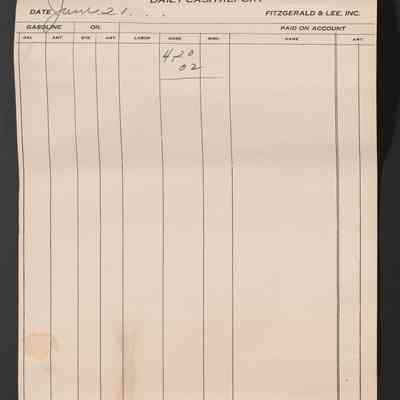 DAILY CASH REPORT
DATE June 21. . . FITZGERALD & LEE, INC.
GASOLINE OIL PAID ON ACCOUNT
GAL. AMT. QTS. AMT. LABOR MDSE. MISC. NAME AMT.
4.20
02